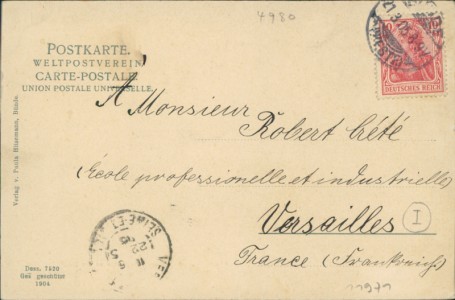 4980
POSTKARTE.
WELTPOSTVEREIN
CARTE-POSTALE
UNION POSTALE UNIVERSELLE.
DEUTSCHES REICH
A Monsieur
Robert Cété
(École professionelle et industrielle)
Versailles
I
France (Frankreich)
Verlag v. Paula Bünde.
SEINE-ET
Dess. 7439
Ges. geschützt
1904